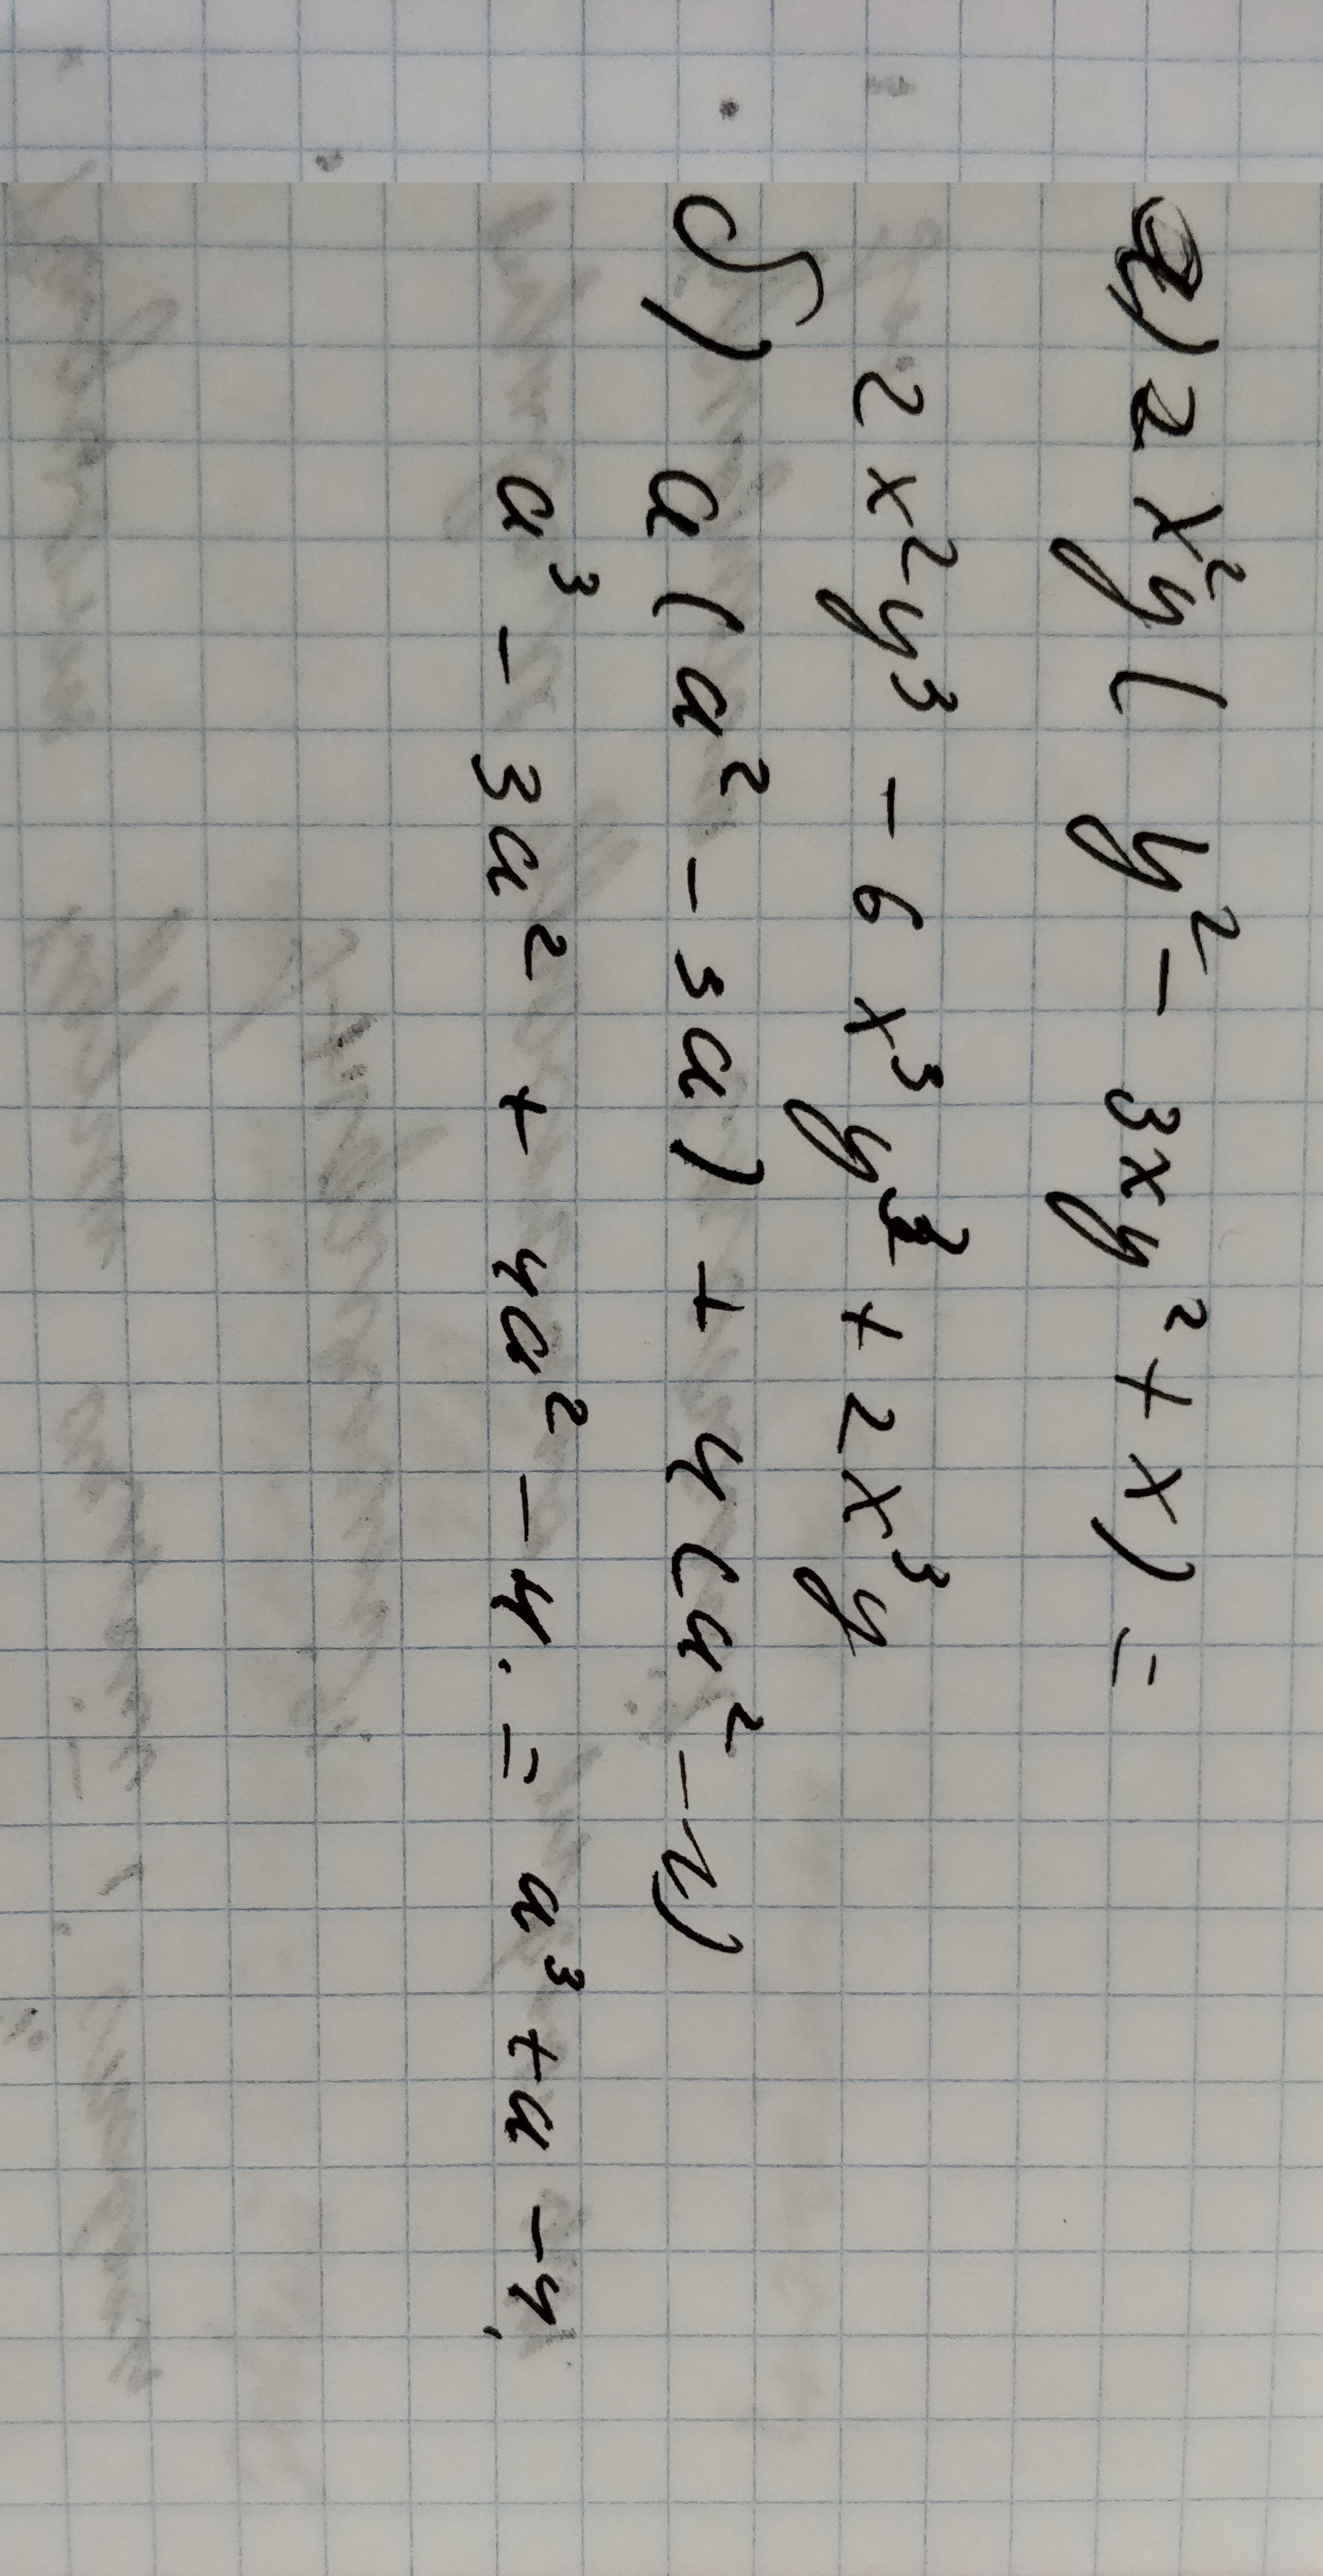 а) 2x²y( y² - 3xy² + x) =
2x²y³ - 6x³y³ + 2x³y
б) a(a² - 3a) + 4(a² - 1)
a³ - 3a² + 4a² - 4. = a³ + a - 4.